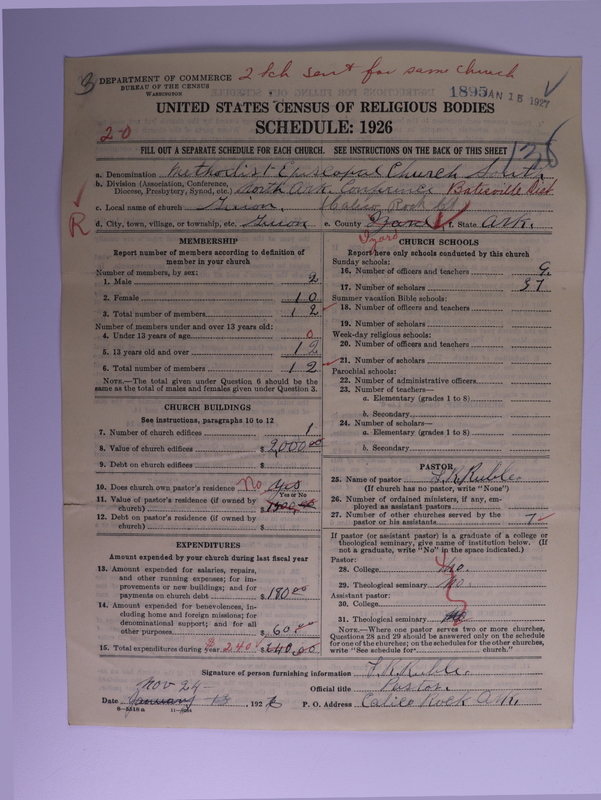 3 DEPARTMENT OF COMMERCE 2 Sch sent for same church
BUREAU OF THE CENSUS
WASHINGTON
1895 JAN 15 1927
UNITED STATES CENSUS OF RELIGIOUS BODIES
2-0
SCHEDULE: 1926
FILL OUT A SEPARATE SCHEDULE FOR EACH CHURCH. SEE INSTRUCTIONS ON THE BACK OF THIS SHEET
a. Denomination Methodist Episcopal Church South
b. Division (Association, Conference, Diocese, Presbytery, Synod, etc.) North Ark Conference Batesville Dist
c. Local name of church Union. (Calico Rock
R
d. City, town, village, or township, etc. Union e. County Izard f. State Ark.
Izard
MEMBERSHIP
Report number of members according to definition of
member in your church
Number of members, by sex:
1. Male 2
2. Female 10
3. Total number of members 12
Number of members under and over 13 years old:
4. Under 13 years of age 0
5. 13 years old and over 12
6. Total number of members 12
NOTE.—The total given under Question 6 should be the
same as the total of males and females given under Question 3.
CHURCH BUILDINGS
See instructions, paragraphs 10 to 12
7. Number of church edifices 1
8. Value of church edifices $ 2000.00
9. Debt on church edifices $
10. Does church own pastor's residence No yes
Yes or No
11. Value of pastor's residence (if owned by
church) $
12. Debt on pastor's residence (if owned by
church) $
EXPENDITURES
Amount expended by your church during last fiscal year
13. Amount expended for salaries, repairs,
and other running expenses; for im-
provements or new buildings; and for
payments on church debt $ 180.00
14. Amount expended for benevolences, in-
cluding home and foreign missions; for
denominational support; and for all
other purposes $ 60.00
15. Total expenditures during year $ 240. $ 240.00
CHURCH SCHOOLS
Report here only schools conducted by this church
Sunday schools:
16. Number of officers and teachers 9
17. Number of scholars 37
Summer vacation Bible schools:
18. Number of officers and teachers
19. Number of scholars
Week-day religious schools:
20. Number of officers and teachers
21. Number of scholars
Parochial schools:
22. Number of administrative officers
23. Number of teachers—
a. Elementary (grades 1 to 8)
b. Secondary
24. Number of scholars—
a. Elementary (grades 1 to 8)
b. Secondary
PASTOR
25. Name of pastor L.R. Ruble
(If church has no pastor, write "None")
26. Number of ordained ministers, if any, em-
ployed as assistant pastors
27. Number of other churches served by the
pastor or his assistants 7
If pastor (or assistant pastor) is a graduate of a college or
theological seminary, give name of institution below. (If
not a graduate, write "No" in the space indicated.)
Pastor:
28. College No.
29. Theological seminary No
Assistant pastor:
30. College
31. Theological seminary
NOTE.—Where one pastor serves two or more churches,
Questions 28 and 29 should be answered only on the schedule
for one of the churches; on the schedules for the other churches,
write "See schedule for church."
Signature of person furnishing information L.R. Ruble.
Nov 24
Official title Pastor.
Date January 13, 1926 P. O. Address Calico Rock Ark.
8—5518 a